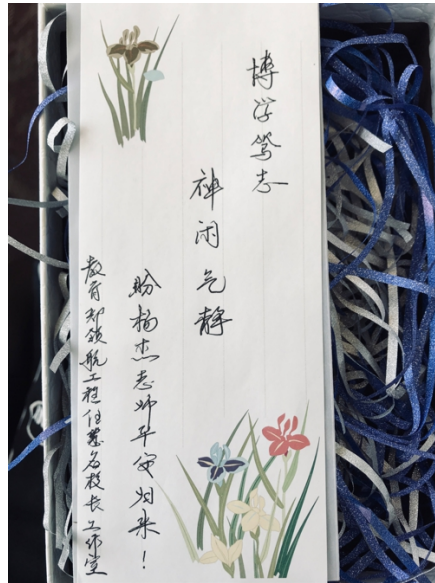 博学笃志
神闲气静
盼杨杰志师平安归来！
教育部领航工程任慧名校长工作室